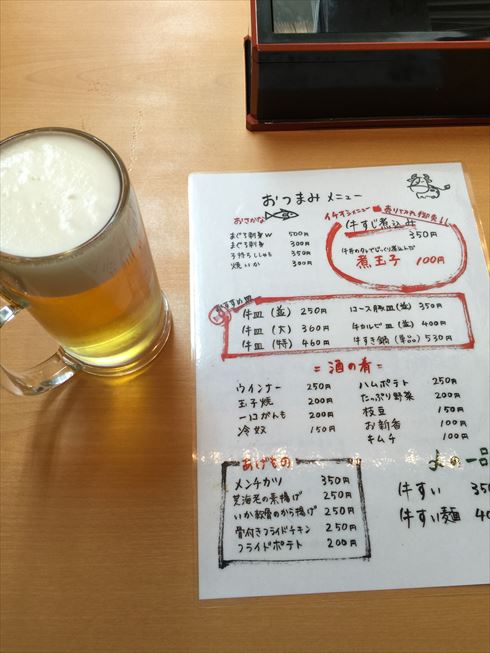 おつまみメニュー
おさかな
まぐろ刺身W 500円
まぐろ刺身 300円
子持ちししゃも 350円
焼いか 300円
イチオシメニュー 売りて九 御免!!
牛すじ煮込み
350円
牛丼のタレでじっくり煮込んだ
煮玉子 100円
おすすめ皿
牛皿 (並) 250円 ロース豚皿(並) 350円
牛皿 (大) 360円 牛カルビ皿(並) 400円
牛皿 (特) 460円 牛すき鍋(単品) 530円
=酒の肴=
ウインナー 250円 ハムポテト 250円
玉子焼 200円 たっぷり野菜 200円
一口がんも 200円 枝豆 150円
冷奴 150円 お新香 100円
キムチ 100円
あげもの
メンチカツ 350円
芝海老の素揚げ 250円
いか軟骨のから揚げ 250円
骨付きフライドチキン 250円
フライドポテト 200円
〆の一品
牛すい 35
牛すい麺 40